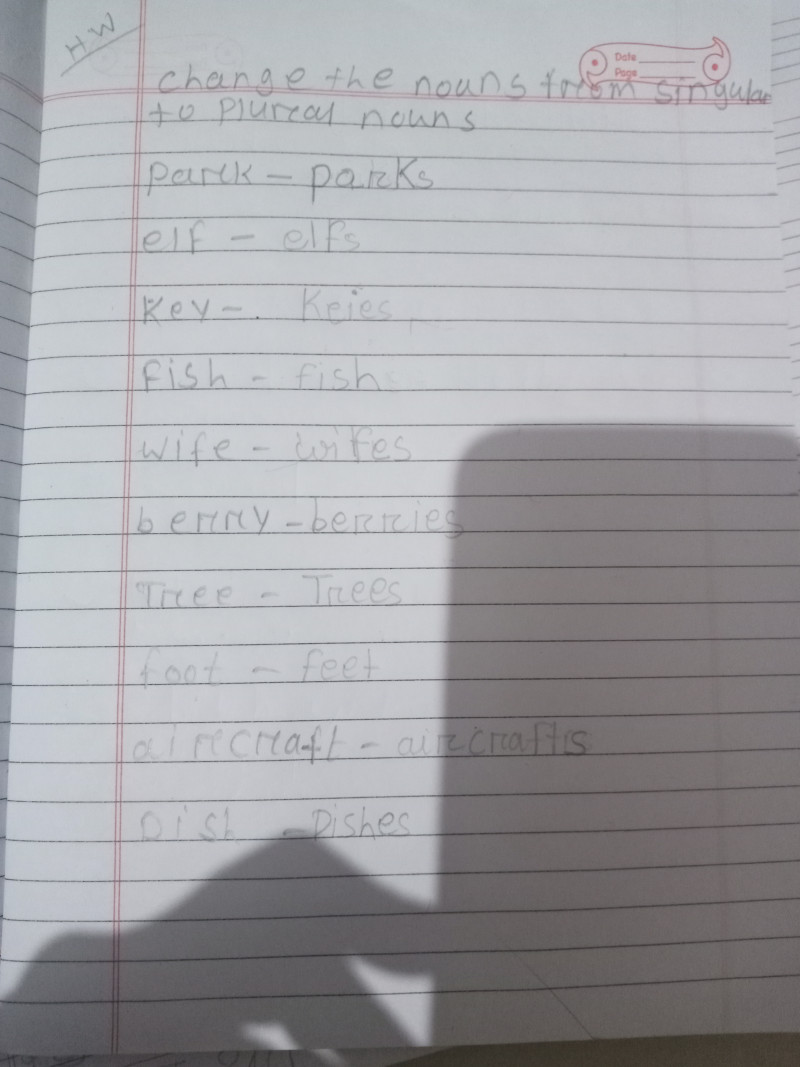 HW
Date
Page
change the nouns from singular
to plural nouns
park - parks
elf - elfs
Key - Keies
Fish - fish
wife - wifes
berry - berries
Tree - Trees
foot - feet
aircraft - aircrafts
Dish - Dishes